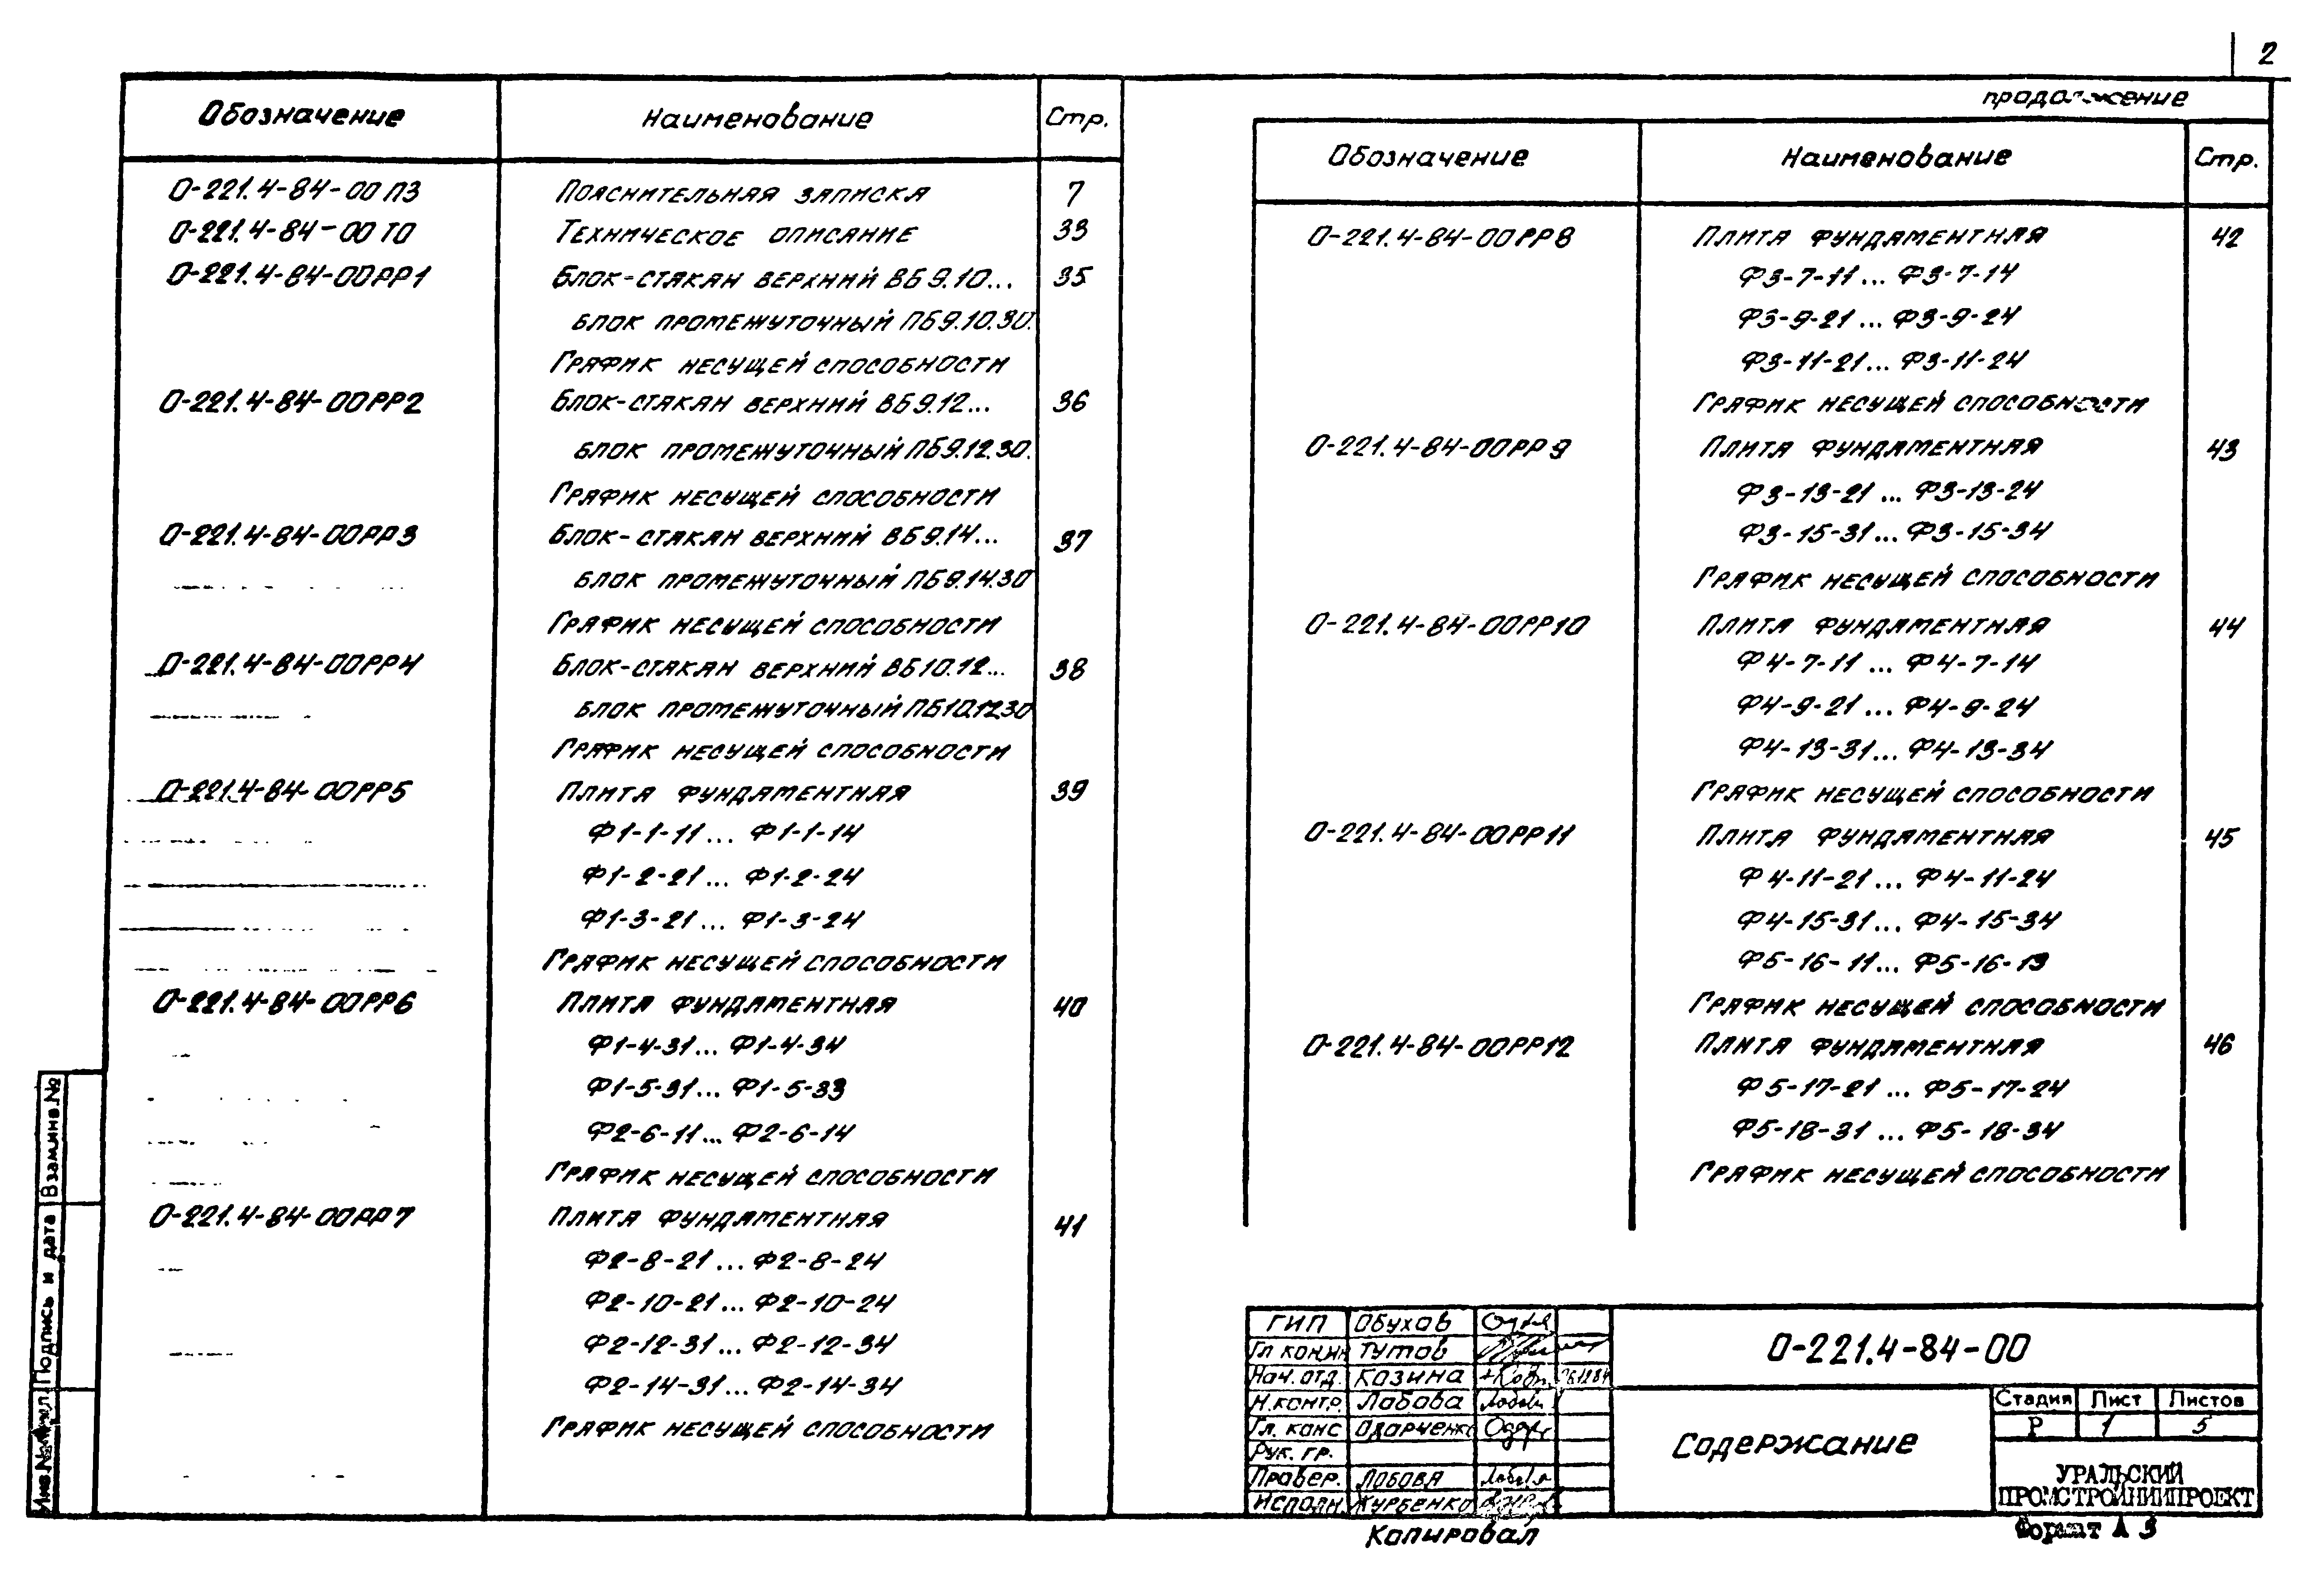 2
Обозначение Наименование Стр.
О-221.4-84-00 ПЗ Пояснительная записка 7
О-221.4-84-00 ТО Техническое описание 33
О-221.4-84-00РР1 Блок-стакан верхний ВБ 9.10... 35
блок промежуточный ПБ9.10.30.
График несущей способности
О-221.4-84-00РР2 Блок-стакан верхний ВБ 9.12... 36
блок промежуточный ПБ9.12.30.
График несущей способности
О-221.4-84-00РР3 Блок-стакан верхний ВБ 9.14... 37
блок промежуточный ПБ9.14.30
График несущей способности
О-221.4-84-00РР4 Блок-стакан верхний ВБ10.12... 38
блок промежуточный ПБ10.12.30
График несущей способности
О-221.4-84-00РР5 Плита фундаментная 39
Ф1-1-11... Ф1-1-14
Ф1-2-21... Ф1-2-24
Ф1-3-21... Ф1-3-24
График несущей способности
О-221.4-84-00РР6 Плита фундаментная 40
Ф1-4-31... Ф1-4-34
Ф1-5-31... Ф1-5-33
Ф2-6-11... Ф2-6-14
График несущей способности
О-221.4-84-00РР7 Плита фундаментная 41
Ф2-8-21... Ф2-8-24
Ф2-10-21... Ф2-10-24
Ф2-12-31... Ф2-12-34
Ф2-14-31... Ф2-14-34
График несущей способности
продолжение
Обозначение Наименование Стр.
О-221.4-84-00РР8 Плита фундаментная 42
Ф3-7-11... Ф3-7-14
Ф3-9-21... Ф3-9-24
Ф3-11-21... Ф3-11-24
График несущей способности
О-221.4-84-00РР9 Плита фундаментная 43
Ф3-13-21... Ф3-13-24
Ф3-15-31... Ф3-15-34
График несущей способности
О-221.4-84-00РР10 Плита фундаментная 44
Ф4-7-11... Ф4-7-14
Ф4-9-21... Ф4-9-24
Ф4-13-31... Ф4-13-34
График несущей способности
О-221.4-84-00РР11 Плита фундаментная 45
Ф4-11-21... Ф4-11-24
Ф4-15-31... Ф4-15-34
Ф5-16-11... Ф5-16-13
График несущей способности
О-221.4-84-00РР12 Плита фундаментная 46
Ф5-17-21... Ф5-17-24
Ф5-18-31... Ф5-18-34
График несущей способности
Инв.№ подл. Подпись и дата Взам.инв.№
ГИП Обухов
Гл кон.ин Тутов
Нач. отд. Козина
Н.контр. Лобова
Гл. конс Одарченко
Рук. гр.
Провер. Лобова
Исполн. Журбенко
О-221.4-84-00
Содержание
Стадия Лист Листов
Р 1 5
УРАЛЬСКИЙ
ПРОМСТРОЙНИИПРОЕКТ
Копировал
Формат А 3